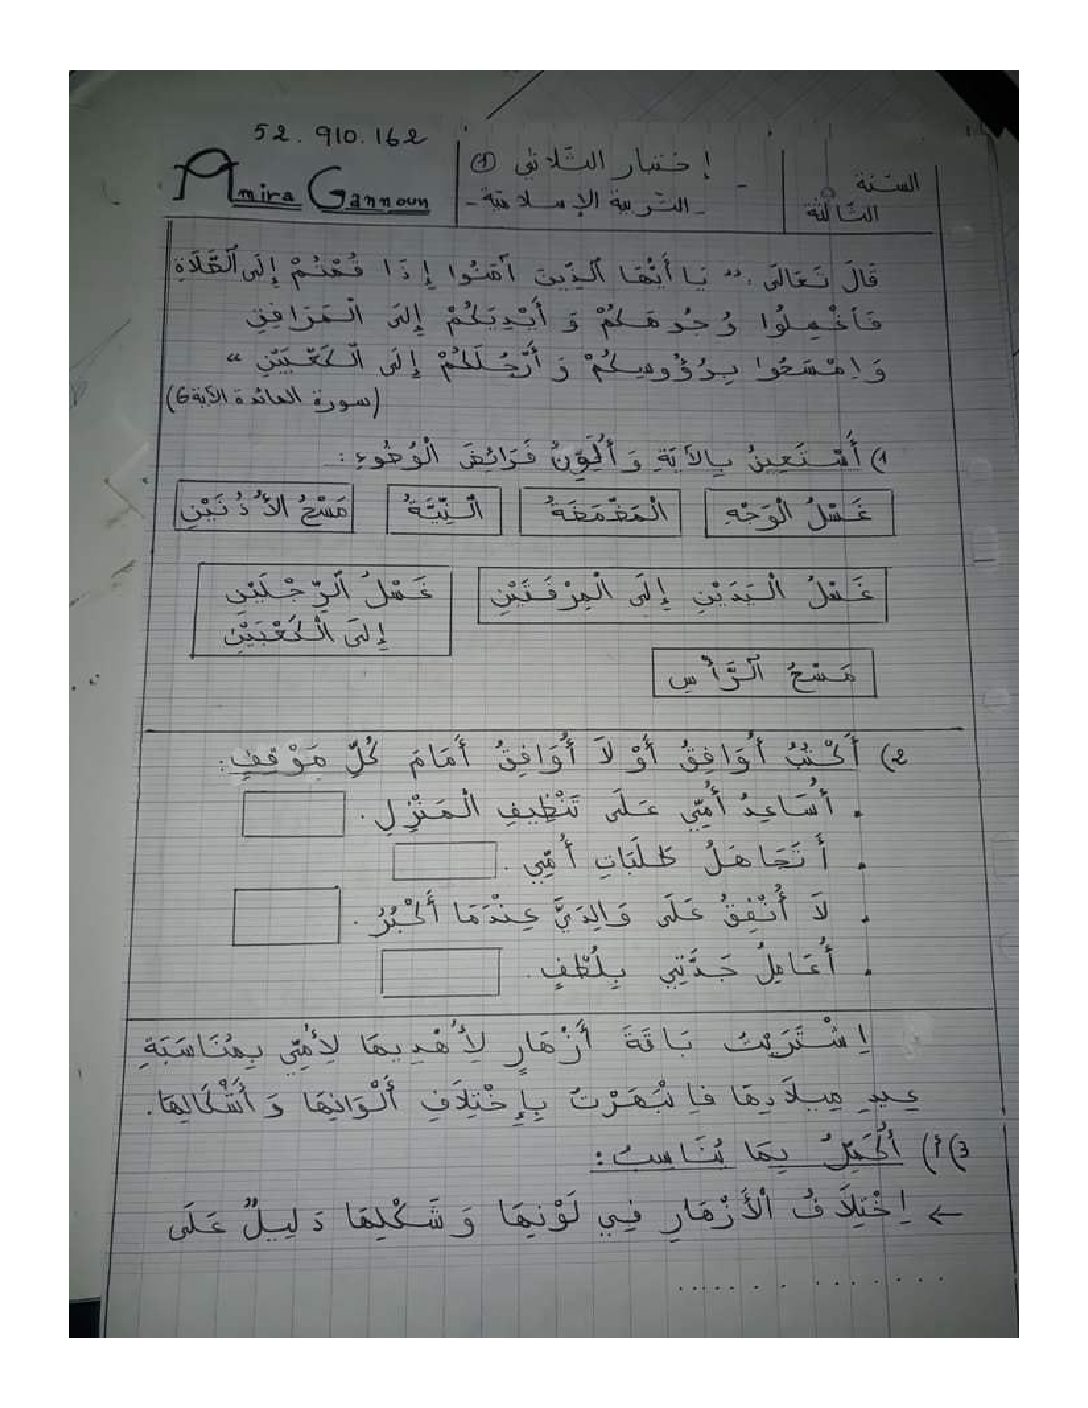 52.910.162
Amira Gannoun
إختبار الثّلاثي 1
- التربية الإسلامية -
السّنة
الثّالثة
قَالَ تَعَالَى : " يَا أَيُّهَا ٱلَّذِينَ آمَنُوا إِذَا قُمْتُمْ إِلَى ٱلصَّلَاةِ
فَاغْسِلُوا وُجُوهَكُمْ وَ أَيْدِيَكُمْ إِلَى الْمَرَافِقِ
وَ امْسَحُوا بِرُؤُوسِكُمْ وَ أَرْجُلَكُمْ إِلَى الْكَعْبَيْنِ "
(سورة المائدة الآية 6)
1) أَسْتَعِينُ بِالآيَةِ وَ أُلَوِّنُ فَرَائِضَ الْوُضُوءِ :
غَسْلُ الْوَجْهِ
الْمَضْمَضَةُ
النِّيَّةُ
مَسْحُ الأُذُنَيْنِ
غَسْلُ الْيَدَيْنِ إِلَى الْمِرْفَقَيْنِ
غَسْلُ الرِّجْلَيْنِ
إِلَى الْكَعْبَيْنِ
مَسْحُ ٱلرَّأْسِ
2) أَكْتُبُ أُوَافِقُ أَوْ لاَ أُوَافِقُ أَمَامَ كُلِّ مَوْقِفٍ :
. أُسَاعِدُ أُمِّي عَلَى تَنْظِيفِ الْمَنْزِلِ .
. أَتَجَاهَلُ طَلَبَاتِ أُمِّي .
. لاَ أُنْفِقُ عَلَى وَالِدَيَّ عِنْدَمَا أَكْبُرُ .
. أُعَامِلُ جَدَّتِي بِلُطْفٍ .
اِشْتَرَيْتُ بَاقَةَ أَزْهَارٍ لِأُهْدِيهَا لِأُمِّي بِمُنَاسَبَةِ
عِيدِ مِيلَادِهَا فَانْبَهَرْتُ بِإِخْتِلَافِ أَلْوَانِهَا وَ أَشْكَالِهَا .
3) أ) أُكَمِّلُ بِمَا يُنَاسِبُ :
← اِخْتِلَافُ الْأَزْهَارِ فِي لَوْنِهَا وَ شَكْلِهَا دَلِيلٌ عَلَى
..............